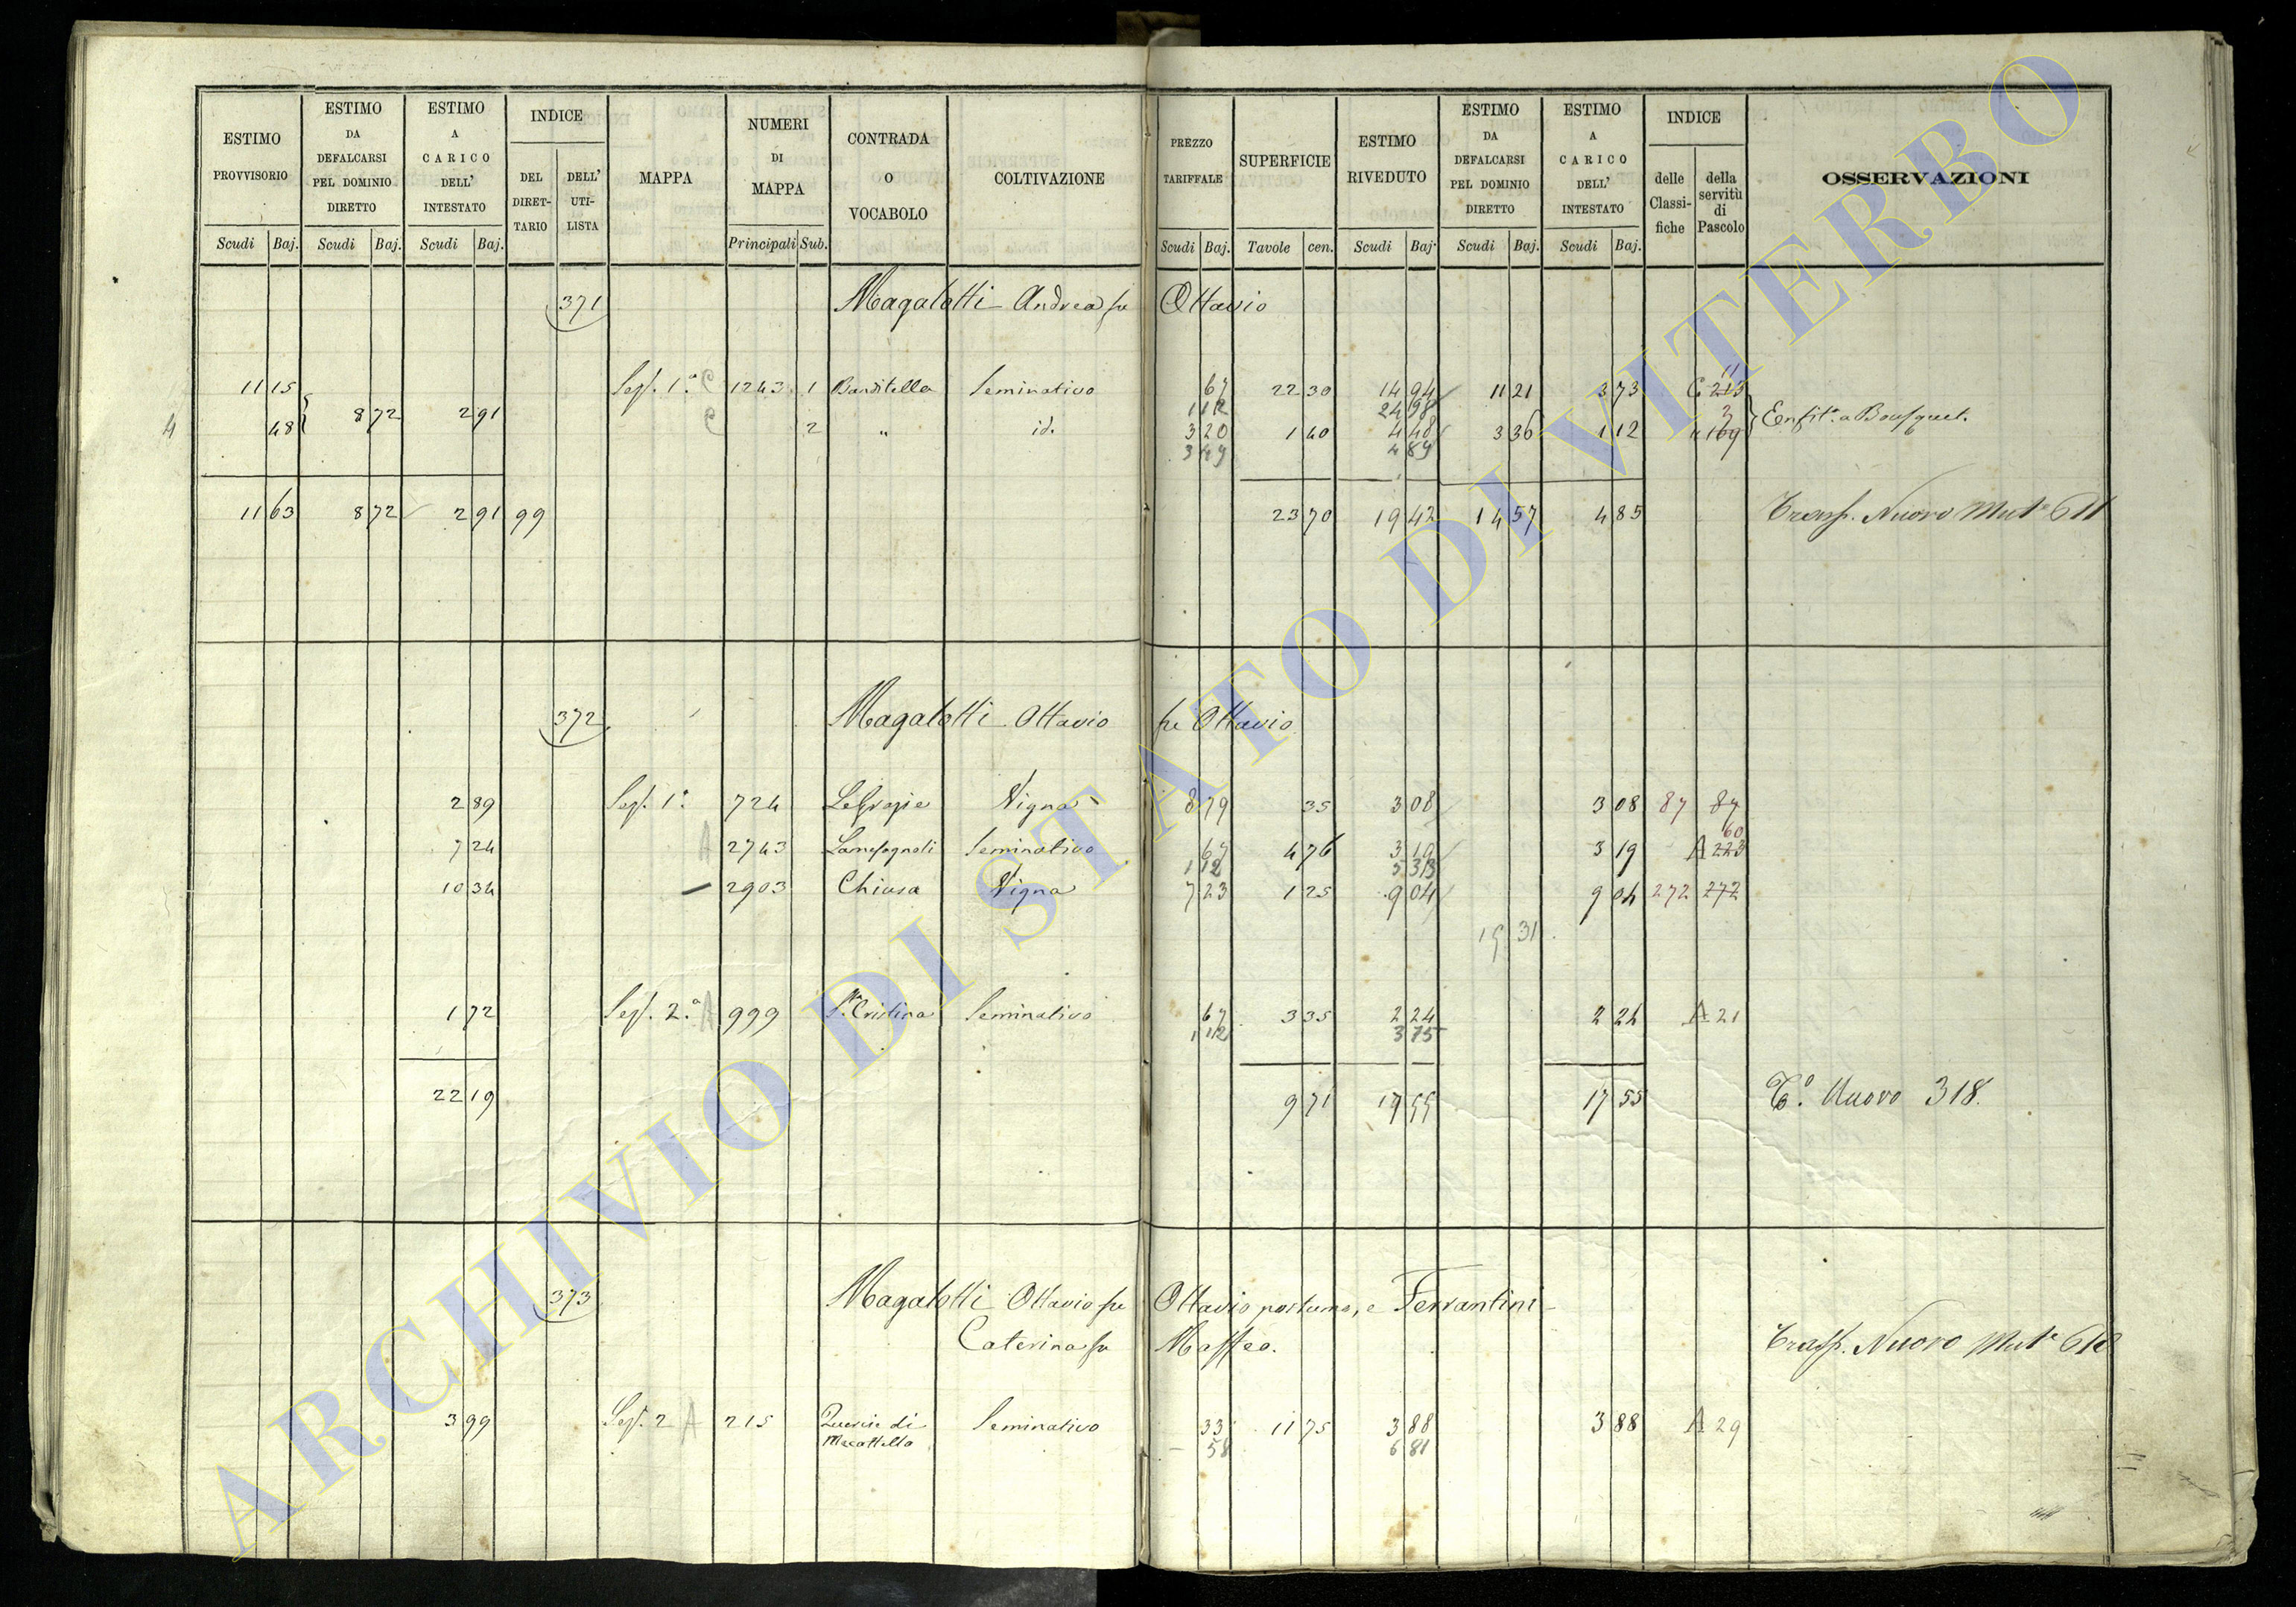 ESTIMO PROVVISORIO
ESTIMO DA DEFALCARSI PEL DOMINIO DIRETTO
ESTIMO A CARICO DELL' INTESTATO
INDICE
DEL DIRET- TARIO
DELL' UTI- LISTA
MAPPA
NUMERI DI MAPPA
CONTRADA O VOCABOLO
COLTIVAZIONE
PREZZO TARIFFALE
SUPERFICIE
ESTIMO RIVEDUTO
ESTIMO DA DEFALCARSI PEL DOMINIO DIRETTO
ESTIMO A CARICO DELL' INTESTATO
INDICE
delle Classi- fiche
della servitù di Pascolo
OSSERVAZIONI
Scudi Baj. Scudi Baj. Scudi Baj. Principali Sub. Scudi Baj. Tavole cen. Scudi Baj. Scudi Baj. Scudi Baj.
371 Magalotti Andrea fu Ottavio
11 15 Sez. 1ª C 1243 1 Banditella Seminativo 67 22 30 14 94 11 21 3 73 C 215 11
8 72 2 91 1 12 24 98
4 48 C 2 " id. 3 20 1 40 4 48 3 36 1 12 " 169 2 Enfit. a Bousquet.
3 49 4 89
11 63 8 72 2 91 99 23 70 19 42 14 57 4 85 Trasp. Nuovo Mute 611
372 Magalotti Ottavio fu Ottavio
2 89 Sez. 1ª 724 Le Grazie Vigna 8 79 35 3 08 3 08 87 87
7 24 A 2743 Seminativo 67 4 76 3 19 3 19 A 223 60
1 12 5 33
10 34 2903 Chiusa Vigna 7 23 1 25 9 04 9 04 272 272
15 31
1 72 Sez. 2ª A 999 Sta Cristina Seminativo 67 3 35 2 24 2 24 A 21
1 12 3 75
22 19 9 71 17 55 17 55 To. Nuovo 318.
373 Magalotti Ottavio fu Ottavio postumo, e Ferrantini
Caterina fu Maffeo. Trasp. Nuovo Mute 610
3 99 Sez. 2 A 215 Quercie di Seminativo 33 11 75 3 88 3 88 A 29
Mecattello 58 6 81
ARCHIVIO DI STATO DI VITERBO